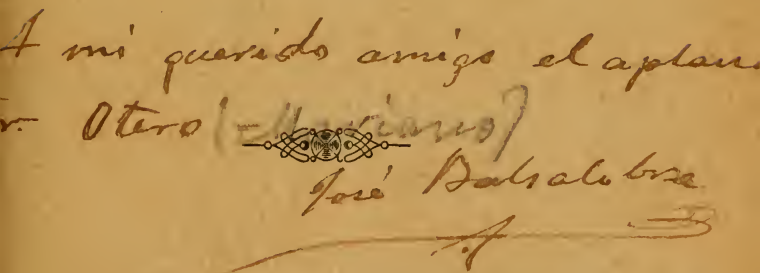 A mi querido amigo el aplau
r. Otero (Mariano)
José Balsalobre